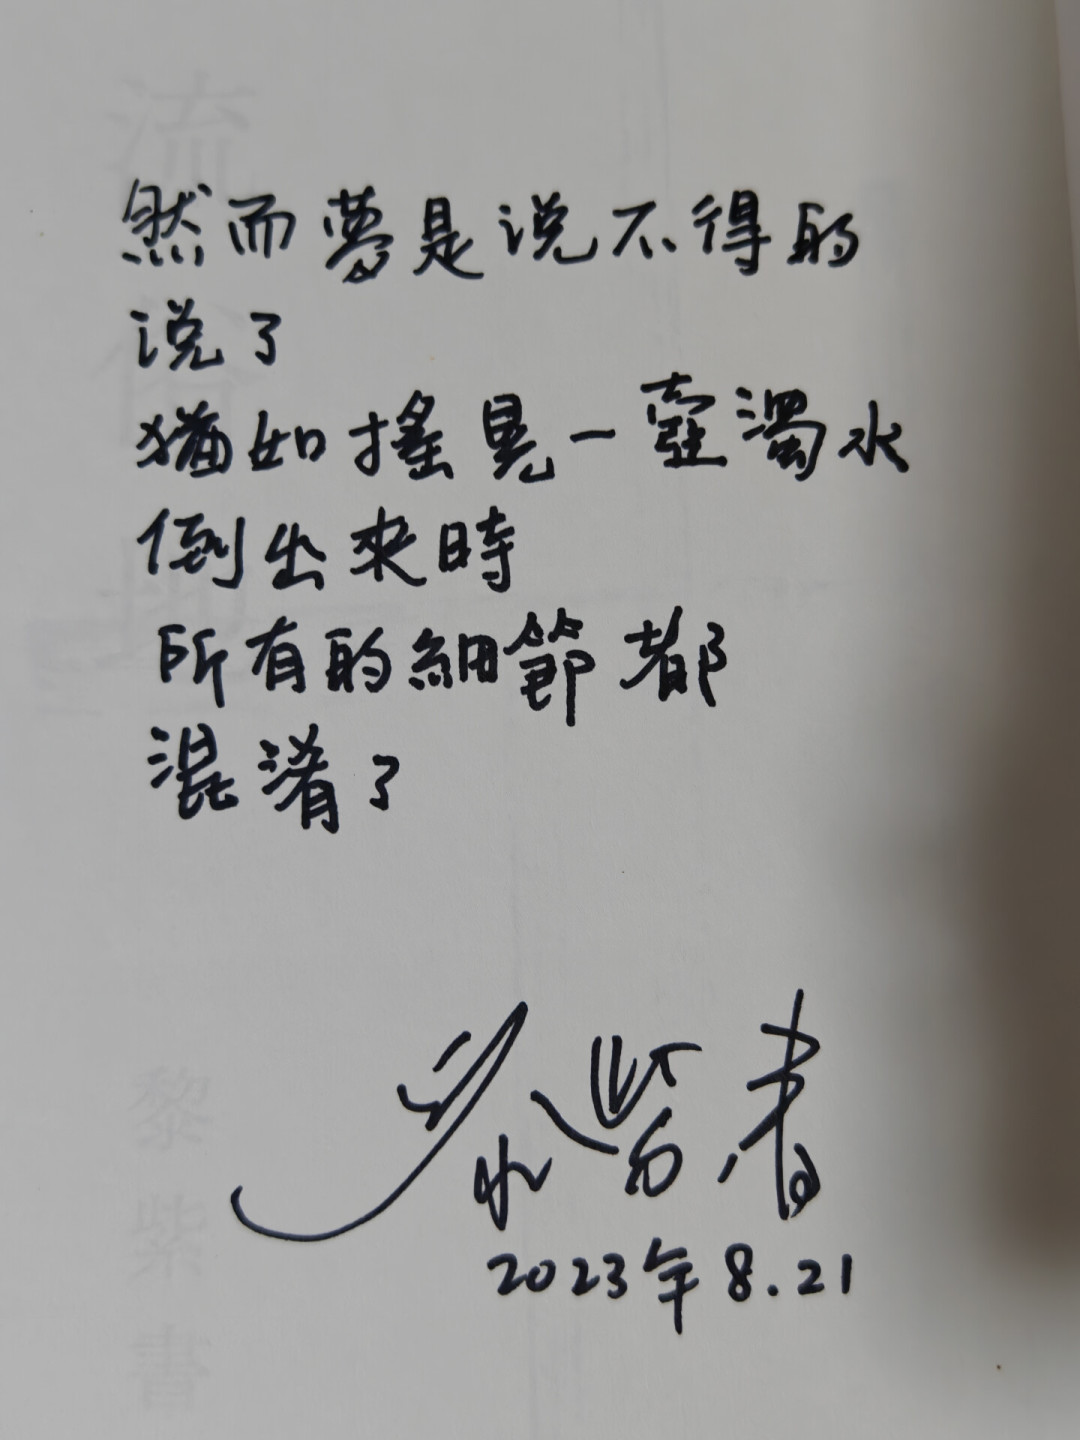 然而夢是说不得的
说了
猶如搖晃一壺濁水
倒出來時
所有的細節都
混淆了
黎紫書
2023年8.21
流
俗
地
黎
紫
書